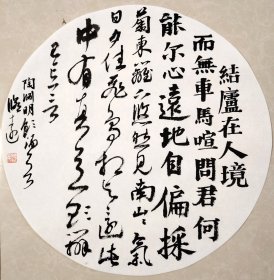 結廬在人境
而無車馬喧問君何
能尔心遠地自偏採
菊東籬下悠然見南山々氣
日夕佳飛鳥相与還此
中有真意欲辨
已忘言
陶淵明飲酒